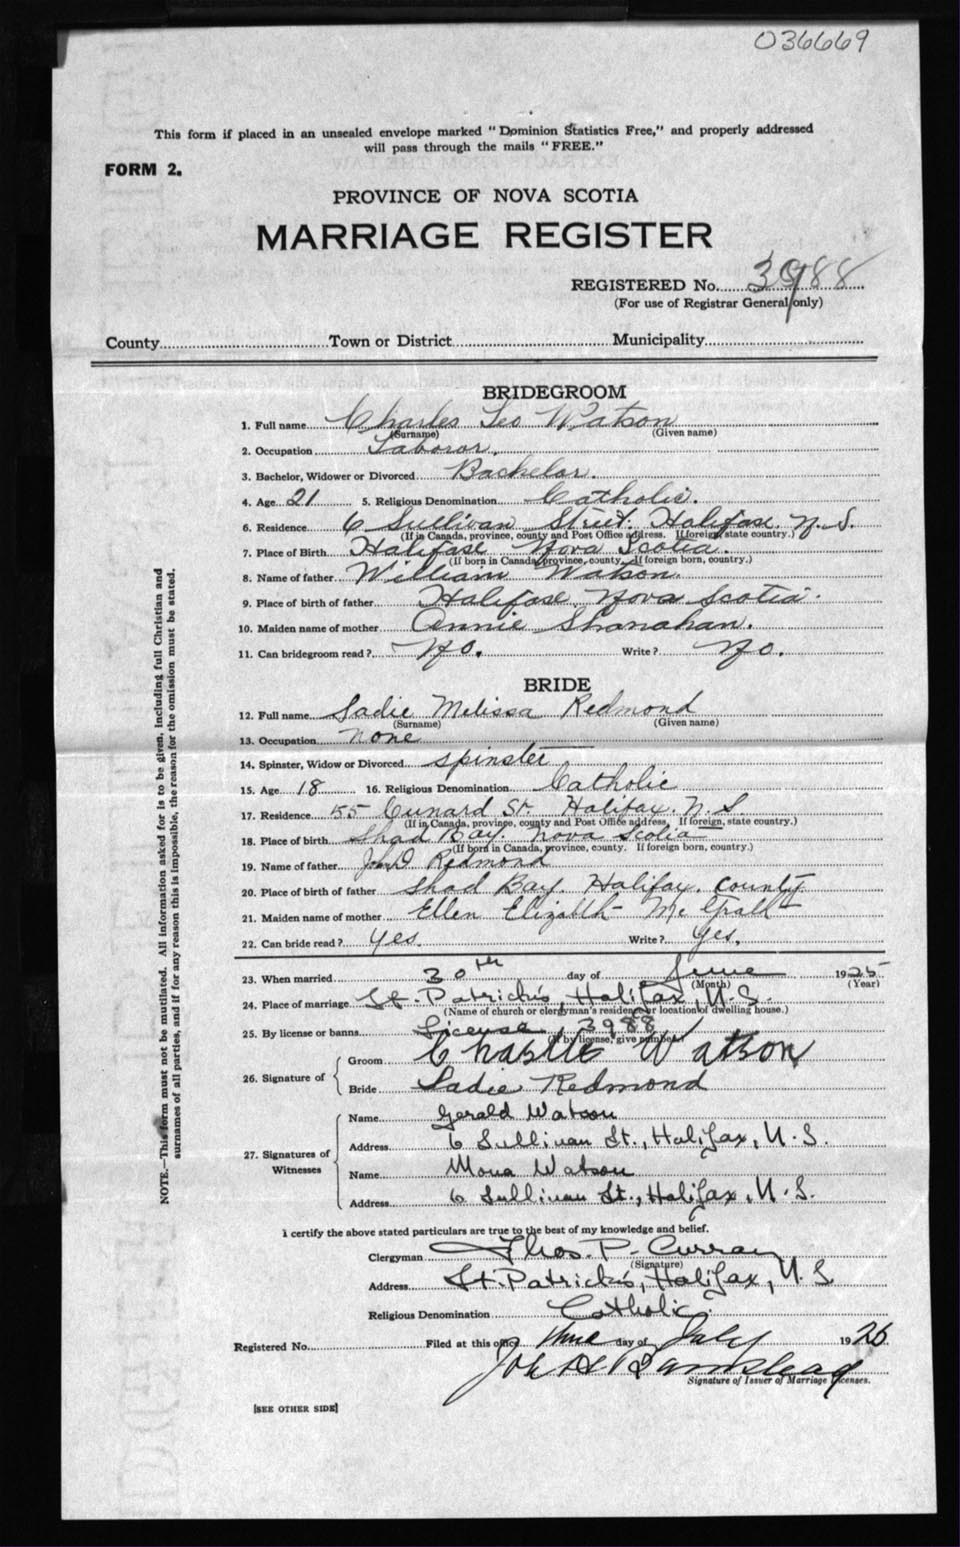 036669
This form if placed in an unsealed envelope marked "Dominion Statistics Free," and properly addressed
will pass through the mails "FREE."
FORM 2.
PROVINCE OF NOVA SCOTIA
MARRIAGE REGISTER
REGISTERED No. 3988
(For use of Registrar General only)
County Town or District Municipality
BRIDEGROOM
1. Full name Charles Leo Watson
(Surname) (Given name)
2. Occupation Laboror.
3. Bachelor, Widower or Divorced Bachelor.
4. Age 21 5. Religious Denomination Catholic.
6. Residence 6 Sullivan Street. Halifax. N.S.
(If in Canada, province, county and Post Office address. If foreign, state country.)
7. Place of Birth Halifax Nova Scotia.
(If born in Canada, province, county. If foreign born, country.)
8. Name of father William Watson.
9. Place of birth of father Halifax Nova Scotia.
10. Maiden name of mother Annie Shanahan.
11. Can bridegroom read? No. Write? No.
BRIDE
12. Full name Sadie Melissa Redmond
(Surname) (Given name)
13. Occupation None
14. Spinster, Widow or Divorced spinster
15. Age 18 16. Religious Denomination Catholic
17. Residence 155 Cunard St. Halifax. N.S.
(If in Canada, province, county and Post Office address, If foreign, state country.)
18. Place of birth Shad Bay. Nova Scotia
(If born in Canada, province, county. If foreign born, country.)
19. Name of father John D Redmond
20. Place of birth of father Shad Bay. Halifax. County
21. Maiden name of mother Ellen Elizabeth McGrath
22. Can bride read? Yes. Write? Yes.
23. When married 30th day of June 1925
(Month) (Year)
24. Place of marriage St. Patrick's, Halifax, N.S.
(Name of church or clergyman's residence or location of dwelling house.)
25. By license or banns License, 3988
(If by license, give number.)
26. Signature of Groom Watson
Bride Sadie Redmond
27. Signatures of Witnesses
Name Gerald Watson
Address 6 Sullivan St., Halifax, N.S.
Name Mona Watson
Address 6 Sullivan St., Halifax, N.S.
I certify the above stated particulars are true to the best of my knowledge and belief.
Clergyman Thos. P. Curran
(Signature)
Address St. Patrick's, Halifax, N.S.
Religious Denomination Catholic.
Registered No. Filed at this office day of July 1925
Signature of Issuer of Marriage Licenses.
[SEE OTHER SIDE]
NOTE.—This form must not be mutilated. All information asked for is to be given, including full Christian and
surnames of all parties, and if for any reason this is impossible, the reason for the omission must be stated.